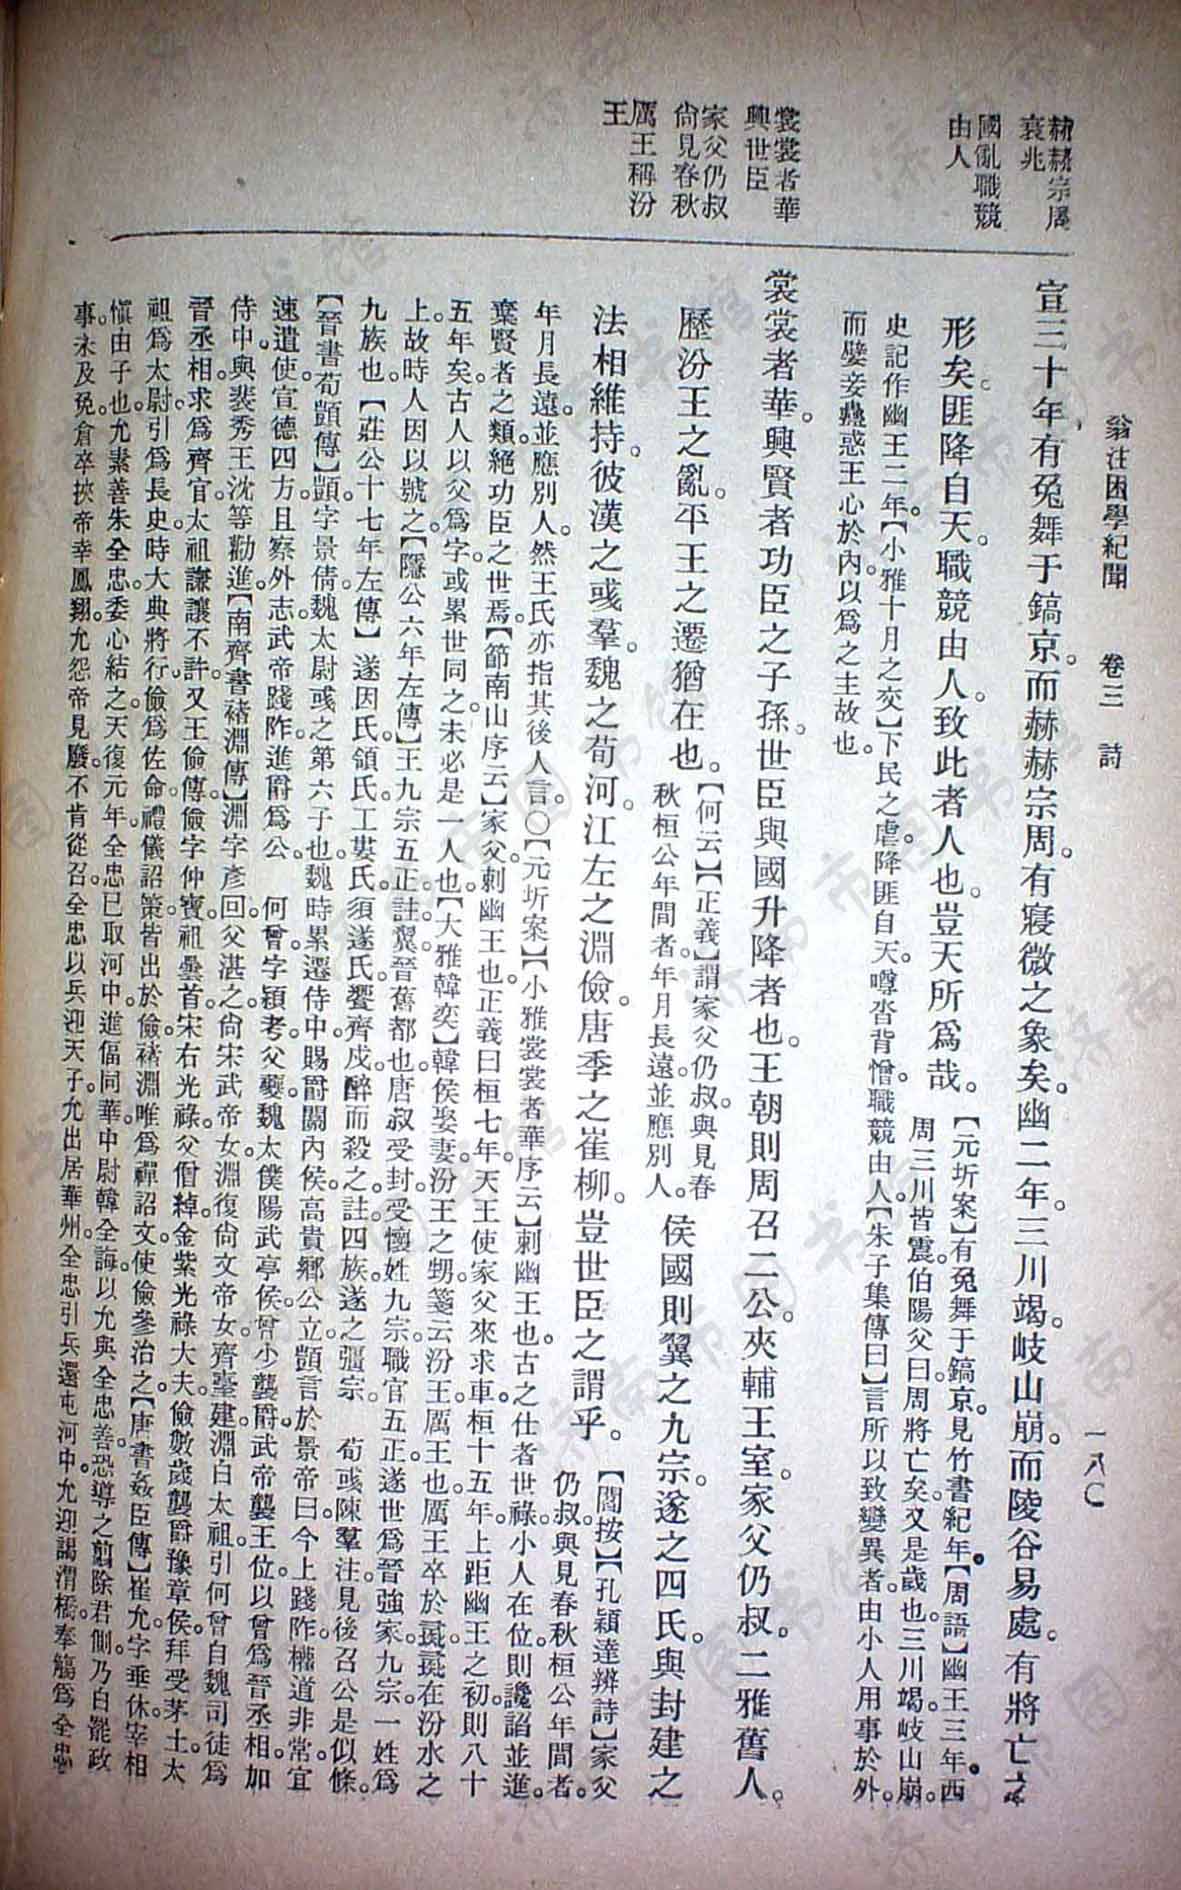 翁注困學紀聞　卷三　詩　一八〇
赫赫宗周
衰兆
國亂職競
由人
裳裳者華
興世臣
家父仍叔
尙見春秋
厲王稱汾
王
宣三十年有兔舞于鎬京。而赫赫宗周。有寖微之象矣。幽二年。三川竭。岐山崩。而陵谷易處。有將亡之
形矣。匪降自天。職競由人。致此者人也。豈天所爲哉。【元圻案】有兔舞于鎬京。見竹書紀年。【周語】幽王三年。西
周三川皆震。伯陽父曰。周將亡矣。又是歲也。三川竭。岐山崩。
史記作幽王二年。【小雅十月之交】下民之虐。降匪自天。噂沓背憎。職競由人。【朱子集傳曰】言所以致變異者。由小人用事於外。
而嬖妾蠱惑王心於內。以爲之主故也。
裳裳者華。興賢者功臣之子孫。世臣與國升降者也。王朝則周召二公。夾輔王室。家父仍叔。二雅舊人。
歷汾王之亂。平王之遷猶在也。【何云】【正義】謂家父仍叔。與見春
秋桓公年間者。年月長遠。並應別人。侯國則翼之九宗。遂之四氏。與封建之
法相維持。彼漢之彧羣。魏之荀河。江左之淵儉。唐季之崔柳。豈世臣之謂乎。【閻按】【孔穎達辨詩】家父
仍叔。與見春秋桓公年間者。
年月長遠。並應別人。然王氏亦指其後人言。〇【元圻案】【小雅裳裳者華序云】刺幽王也。古之仕者世祿。小人在位。則讒諂並進。
棄賢者之類。絕功臣之世焉。【節南山序云】家父刺幽王也。正義曰。桓七年。天王使家父來求車。桓十五年。上距幽王之初。則八十
五年矣。古人以父爲字。或累世同之。未必是一人也。【大雅韓奕】韓侯娶妻。汾王之甥。箋云。汾王。厲王也。厲王卒於彘。彘在汾水之
上。故時人因以號之。【隱公六年左傳】王九宗五正。註。翼。晉舊都也。唐叔受封。受懷姓九宗。職官五正。遂世爲晉強家。九宗。一姓爲
九族也。【莊公十七年左傳】遂因氏。領氏。工婁氏。須遂氏。饗齊戍。醉而殺之。註。四族。遂之彊宗。　荀彧陳羣注。見後召公是似條。
【晉書荀顗傳】顗。字景倩。魏太尉彧之第六子也。魏時累遷侍中。賜爵關內侯。高貴鄉公立。顗言於景帝曰。今上踐阼。權道非常。宜
速遣使。宣德四方。且察外志。武帝踐阼。進爵爲公。　何曾。字穎考。父夔。魏太僕陽武亭侯。曾少襲爵。武帝襲王位。以曾爲晉丞相。加
侍中。與裴秀王沈等勸進。【南齊書褚淵傳】淵字彥回。父湛之。尙宋武帝女。淵復尙文帝女。齊臺建。淵白太祖。引何曾自魏司徒爲
晉丞相。求爲齊官。太祖謙讓不許。又王儉傳。儉字仲寶。祖曇首。宋右光祿。父僧綽。金紫光祿大夫。儉數歲襲爵豫章侯。拜受茅土。太
祖爲太尉。引爲長史。時大典將行。儉爲佐命。禮儀詔策。皆出於儉。褚淵唯爲禪詔文。使儉參治之。【唐書姦臣傳】崔允。字垂休。宰相
愼由子也。允素善朱全忠。委心結之。天復元年。全忠已取河中。進偪同華。中尉韓全誨。以允與全忠善。恐導之翦除君側。乃白罷政
事。未及免。倉卒挾帝幸鳳翔。允怨帝見廢。不肯從召。全忠以兵迎天子。允出居華州。全忠引兵還屯河中。允迎謁渭橋。奉觴爲全忠